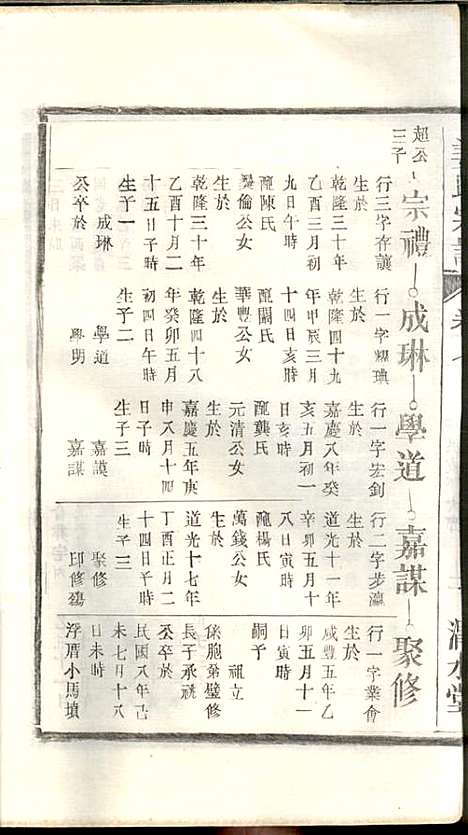 超公三子
宗禮
成琳
學道
嘉謀
聚修
行三字存讓
生於
乾隆三十年
乙酉三月初
九日午時
配陳氏
公女
生於
乾隆三十年
乙酉十月二
十五日子時
生子一
成琳
公卒於
行一字耀璵
生於
乾隆四十九
年甲辰三月
十四日亥時
配闕氏
華豐公女
生於
乾隆四十八
年癸卯五月
初四日午時
生子二
學道
學明
行一字宏釗
生於
嘉慶八年癸
亥五月初一
日亥時
配龔氏
元清公女
生於
嘉慶五年庚
申八月十四
日子時
生子三
嘉謨
嘉謀
行二字步瀛
生於
道光十一年
辛卯五月十
八日寅時
配楊氏
萬錢公女
生於
道光十七年
丁酉正月二
十四日子時
生子三
聚修
即修鷄
行一字業會
生於
咸豐五年乙
卯五月十一
日寅時
嗣子
祖立
係胞弟璧修
長子承祧
公卒於
民國八年己
未七月十八
日未時
浮厝小馬墳